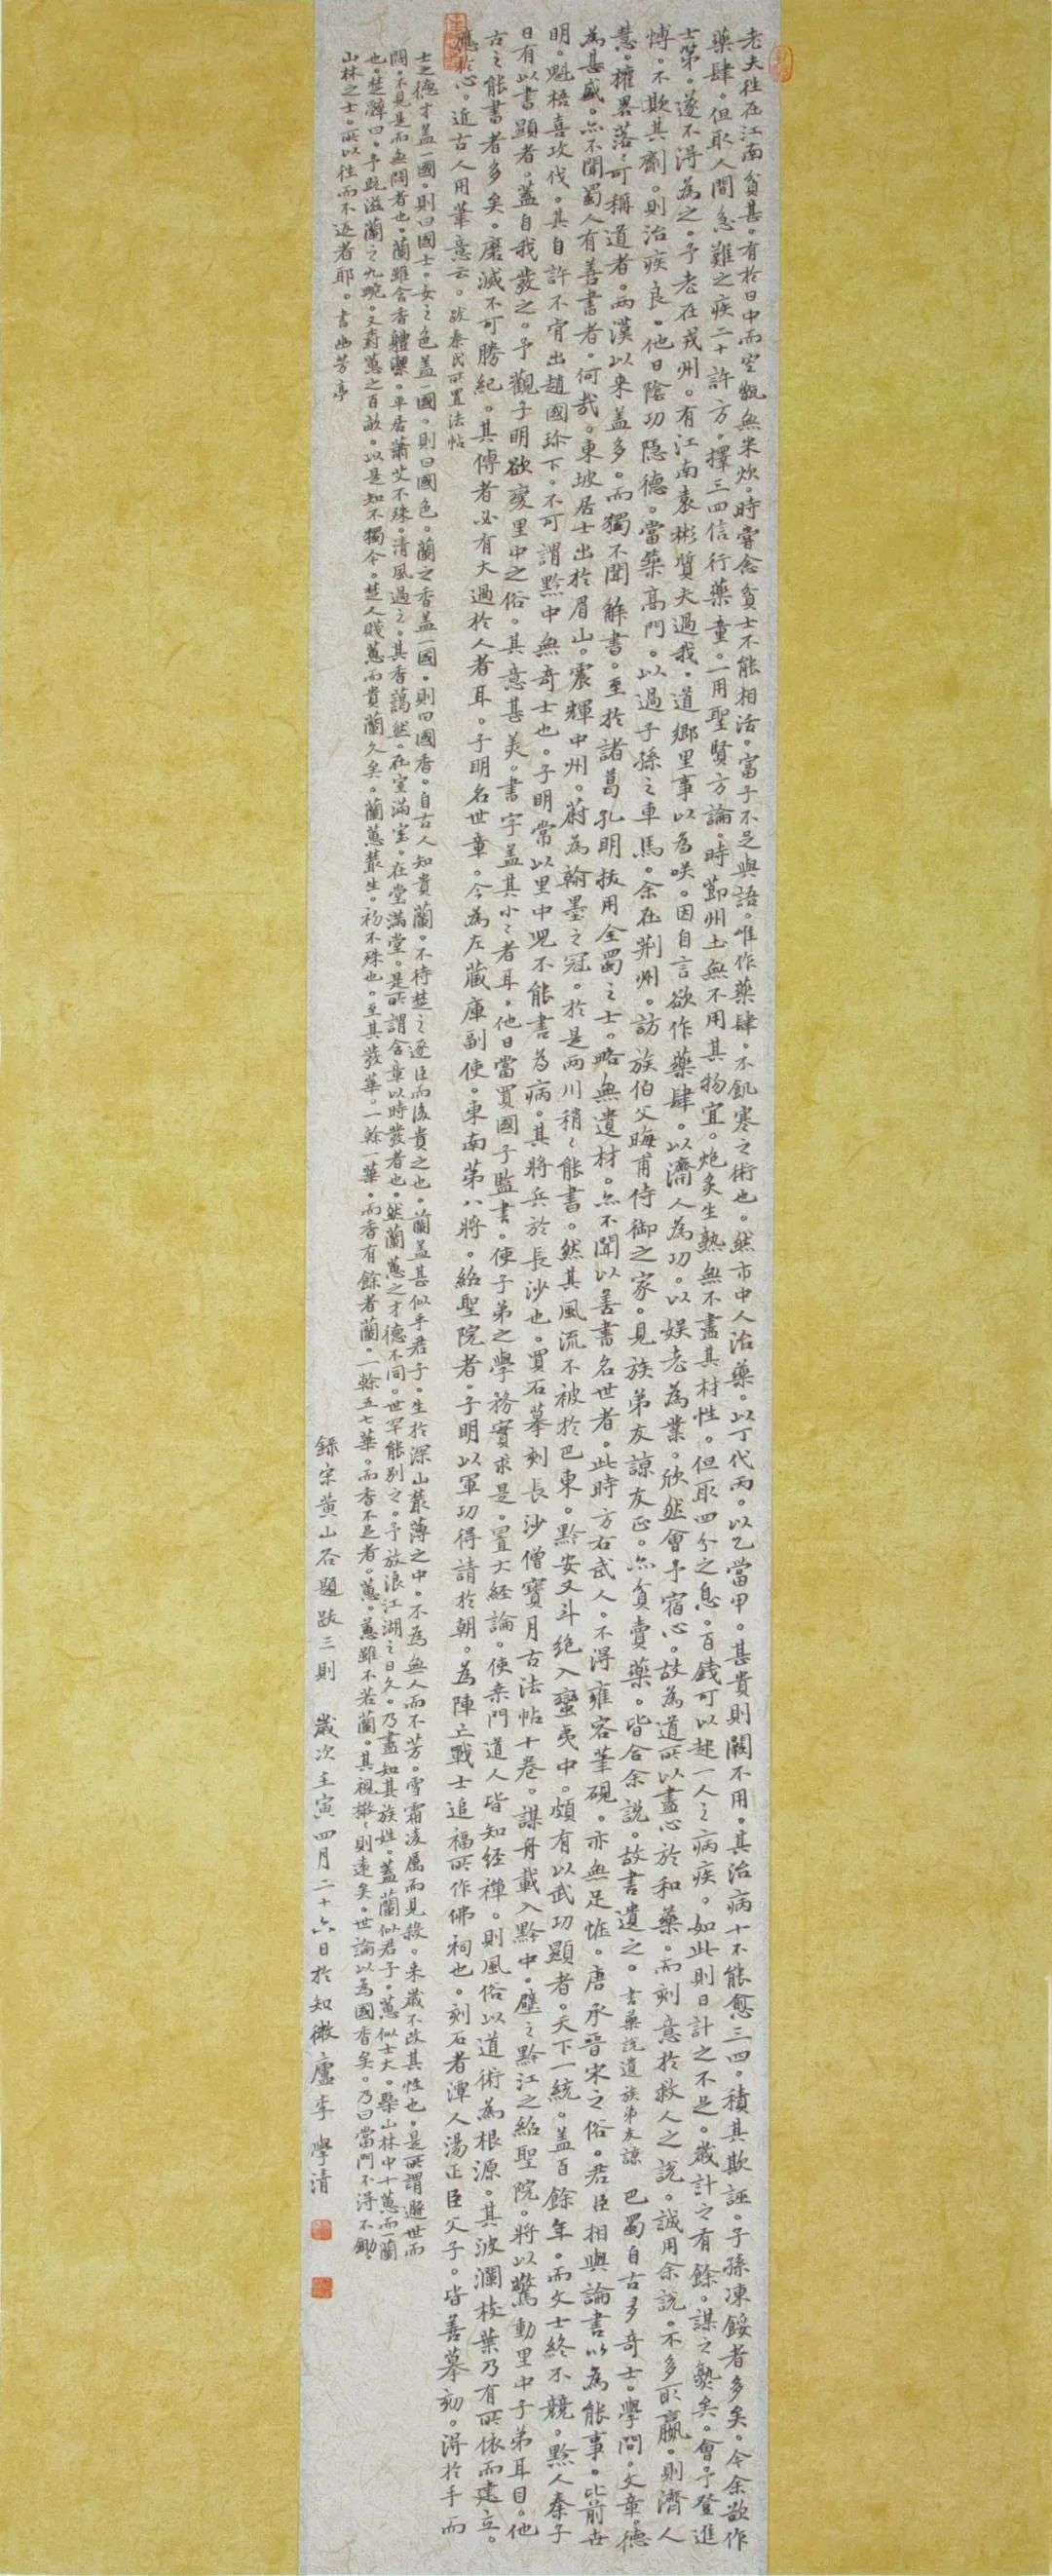 老夫往在江南貧甚。有於日中而空甑無米炊。時嘗念貧士不能相活。富子不足與語。唯作藥肆。不飢寒之術也。然市中人治藥。以丁代丙。以乙當甲。甚貴則闕不用。其治病十不能愈三四。積其欺誣。子孫凍餒者多矣。今余欲作
藥肆。但取人間急難之疾二十許方。擇三四信行藥童。一用聖賢方論。時節州土無不用其物宜。炮炙生熟無不盡其材性。但取四分之息。百錢可以起一人之病疾。如此則日計之不足。歲計之有餘。謀之熟矣。會予登進
士第。遂不得為之。予老在戎州。有江南袁彬質夫過我。道鄉里事以為咲。因自言欲作藥肆。以濟人為功。以娛老為業。欣然會予宿心。故為道所以盡心於和藥。而刻意於救人之說。誠用余說。不多取贏。則濟人
博。不欺其劑。則治疾良。他日陰功隱德。當築高門。以過子孫之車馬。余在荆州。訪族伯父晦甫侍御之家。見族弟友諒友正。亦貧賣藥。皆合余說。故書遺之。書藥說遺族弟友諒 巴蜀自古多奇士。學問。文章。德
慧。權畧落〻可稱道者。兩漢以來盖多。而獨不聞解書。至於諸葛孔明拔用全蜀之士。略無遺材。亦不聞以善書名世者。此時方右武人。不得雍容筆硯。亦無足恠。唐承晉宋之俗。君臣相與論書以為能事。比前世
為甚盛。亦不聞蜀人有善書者。何哉。東坡居士出於眉山。震輝中州。蔚為翰墨之冠。於是兩川稍〻能書。然其風流不被於巴東。黔安又斗絕入蠻夷中。頗有以武功顯者。天下一統。盖百餘年。而文士終不競。黔人秦子
明。魁梧喜攻伐。其自許不肯出趙國珍下。不可謂黔中無奇士也。子明常以里中兒不能書為病。其將兵於長沙也。買石摹刻長沙僧寶月古法帖十卷。謀舟載入黔中。壁之黔江之紹聖院。將以驚動里中子弟耳目。他
日有以書顯者。盖自我發之。予觀子明欲變里中之俗。其意甚美。書字盖其小〻者耳。他日當買國子監書。使子弟之學務實求是。置大經論。使桑門道人皆知經禪。則風俗以道術為根源。其波瀾枝葉乃有所依而建立。
古之能書者多矣。磨滅不可勝紀。其傳者必有大過於人者耳。子明名世章。今為左藏庫副使。東南第八將。紹聖院者。子明以軍功得請於朝。為陣亡戰士追福所作佛祠也。刻石者潭人湯正臣父子。皆善摹刻。得於手而
應於心。近古人用筆意云。跋秦氏所置法帖
士之德才盖一國。則曰國士。女之色盖一國。則曰國色。蘭之香盖一國。則曰國香。自古人知貴蘭。不待楚之逐臣而後貴之也。蘭盖甚似乎君子。生於深山叢薄之中。不為無人而不芳。雪霜凌厲而見殺。來歲不改其性也。是所謂遯世而
悶。不見是而無悶者也。蘭雖含香體潔。平居蕭艾不殊。清風過之。其香藹然。在室滿室。在堂滿堂。是所謂含章以時發者也。然蘭蕙之才德不同。世罕能別之。予放浪江湖之日久。乃盡知其族姓。盖蘭似君子。蕙似士大。槩山林中十蕙而一蘭
也。楚辭曰。予既滋蘭之九畹。又樹蕙之百畝。以是知不獨今。楚人賤蕙而貴蘭久矣。蘭蕙叢生。初不殊也。至其發華。一榦一華。而香有餘者蘭。一榦五七華。而香不足者。蕙。蕙雖不若蘭。其視椒〻則遠矣。世論以為國香矣。乃曰當門不得不鋤
山林之士。所以往而不返者耶。書幽芳亭
録宋黄山谷題跋三則 歲次壬寅四月二十六日於知微廬李學清